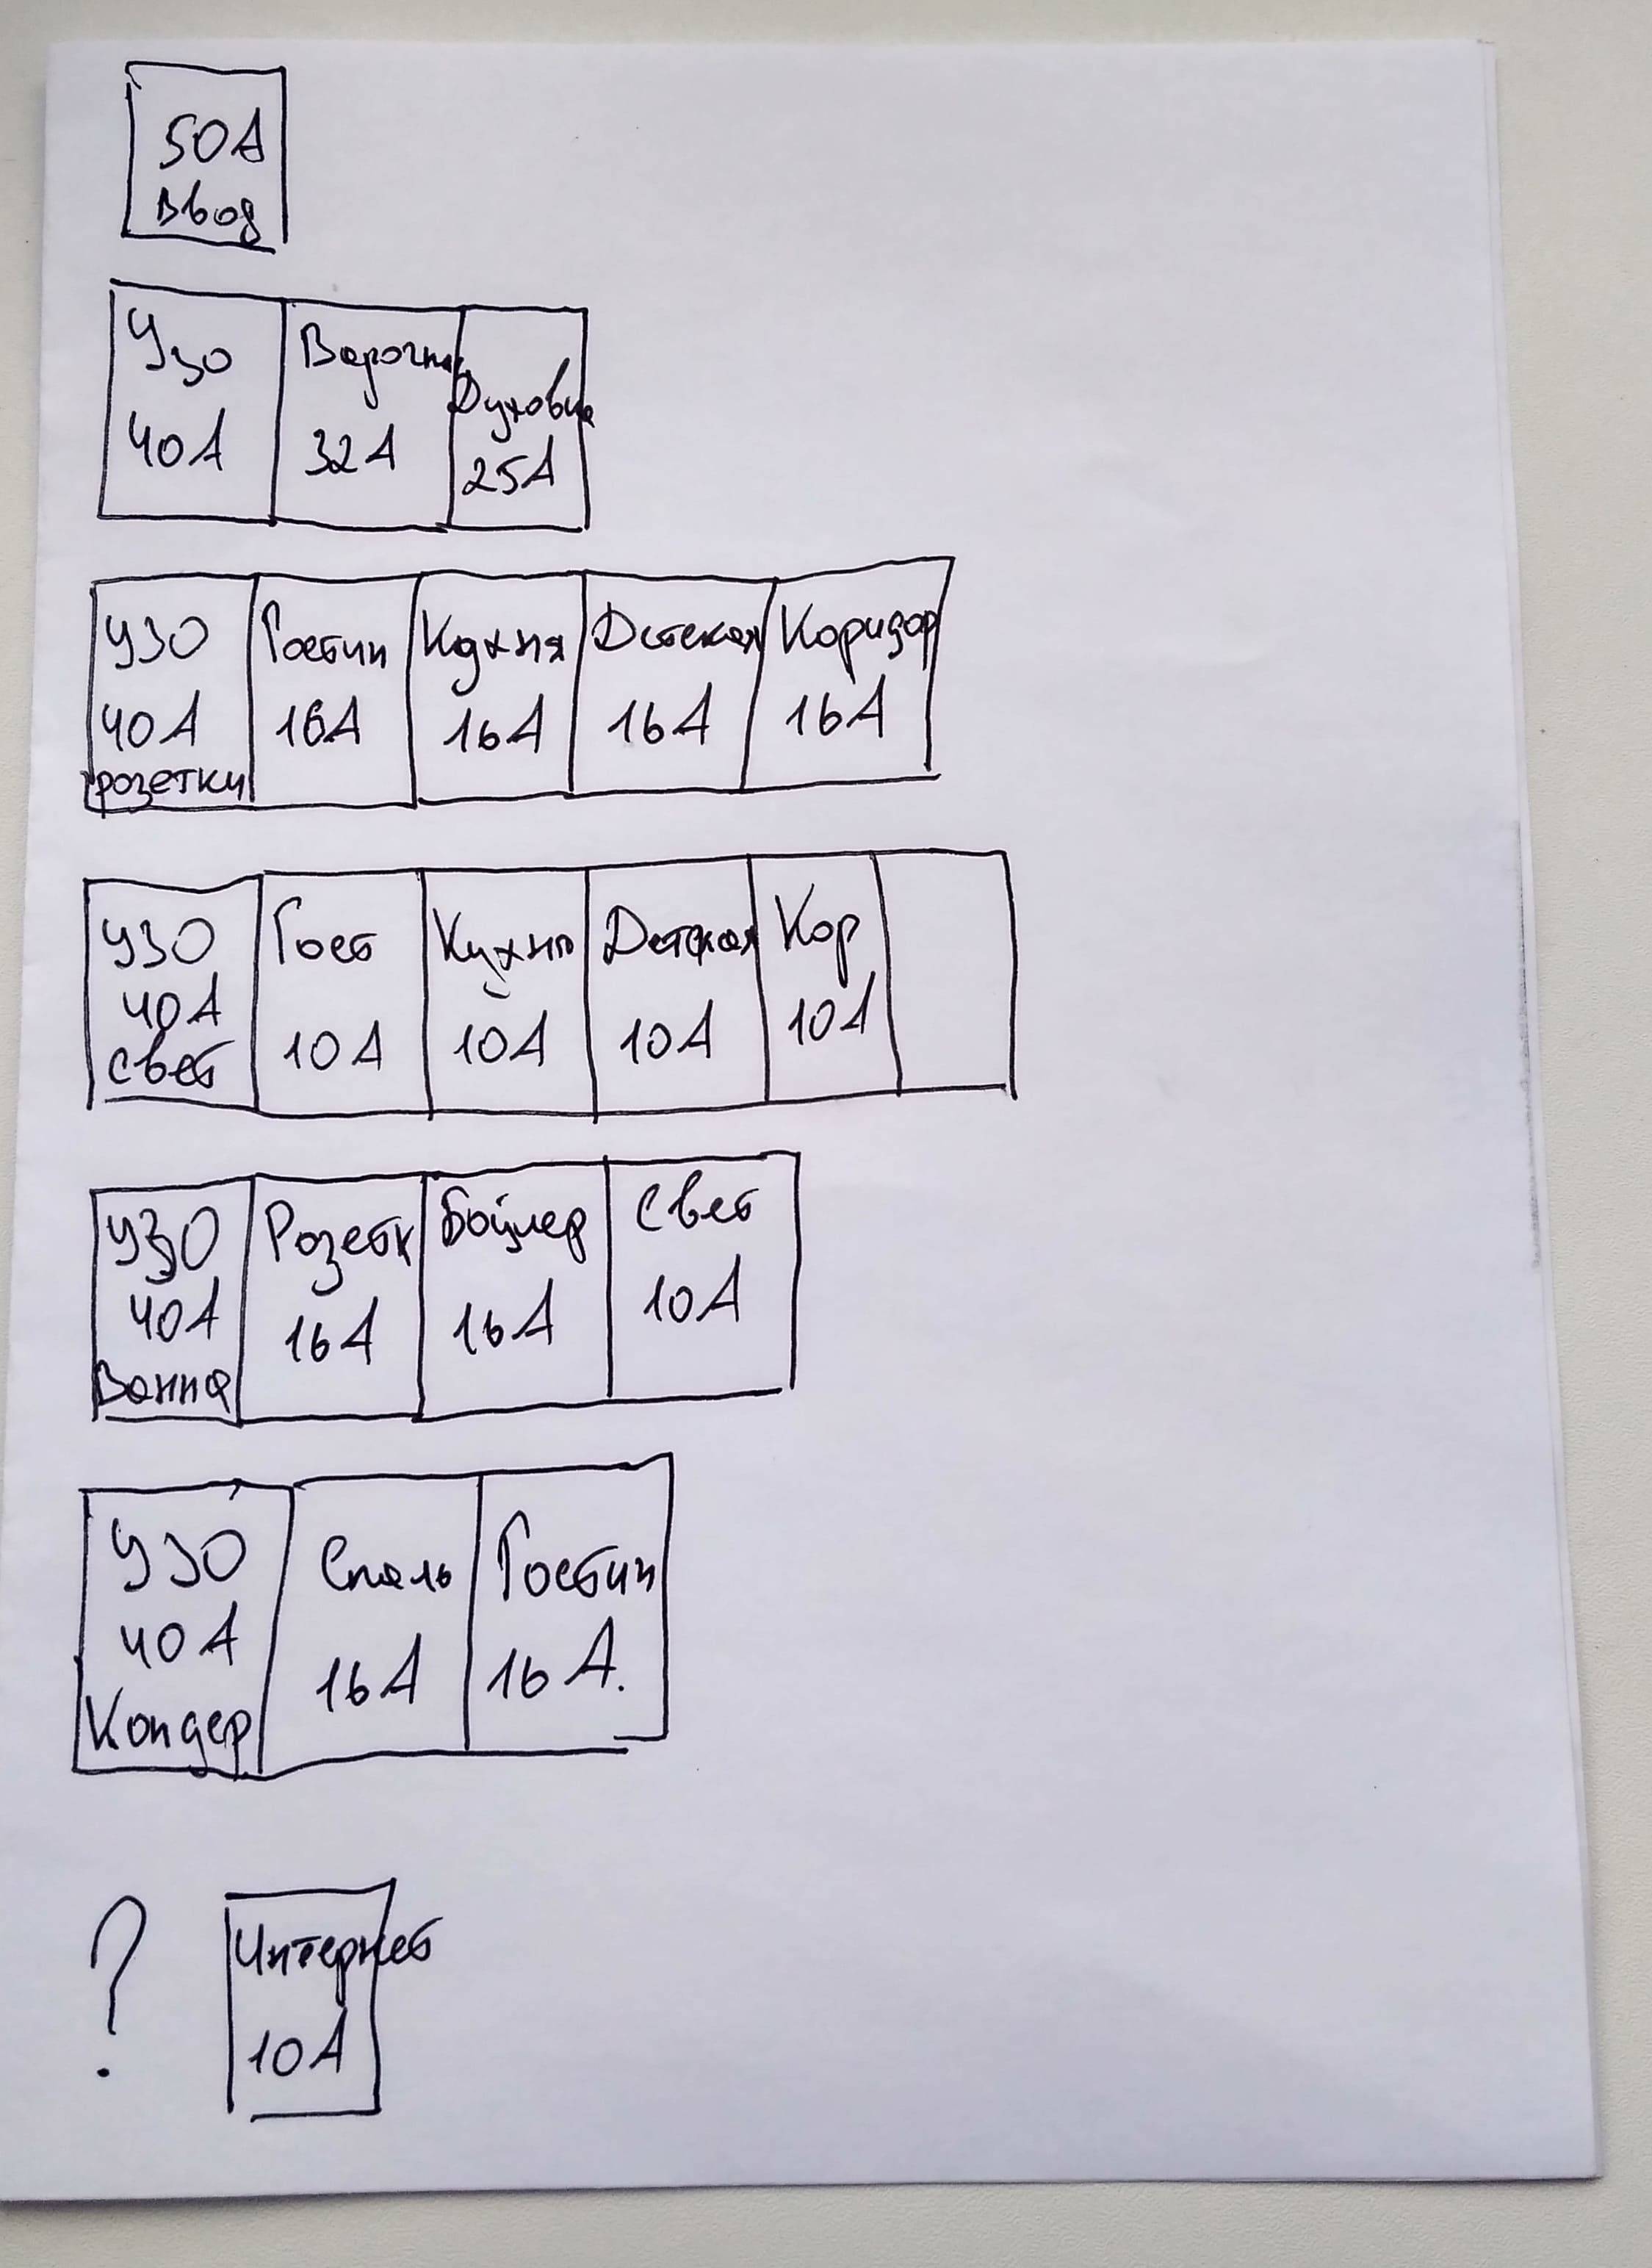 50А
Ввод
УЗО
40А
Варочн
32А
Духовк
25А
УЗО
40А
розетки
Гостин
16А
Кухня
16А
Детская
16А
Коридор
16А
УЗО
40А
свет
Гост
10А
Кухня
10А
Детская
10А
Кор
10А
УЗО
40А
Ванна
Розетк
16А
Бойлер
16А
Свет
10А
УЗО
40А
Кондер
Спаль
16А
Гостин
16А.
?
Интернет
10А